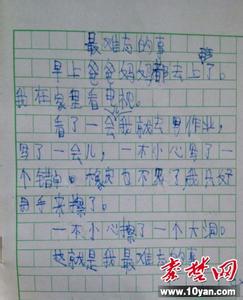 最难忘的事
早上爸爸妈妈都去上了。
我在家里看电视。
看了一会我就去写作业,
写了一会儿,一不小心写了一
个错字。橡皮也不见了,我只好
用手来擦了。
一不小心擦了一个大洞。
这就是我最难忘的事
秦楚网
www.10yan.com